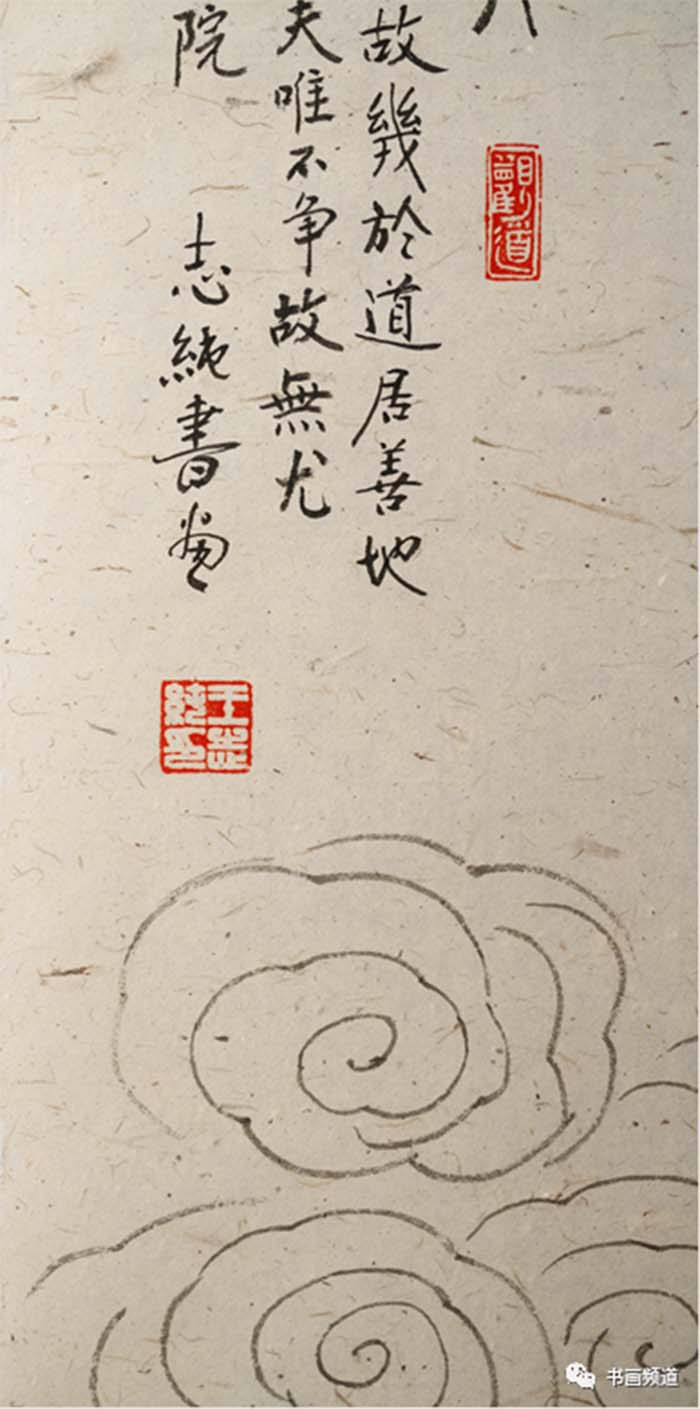 觀道
故幾於道居善地
夫唯不争故無尤
院 志純書畫
王志純印
书画频道